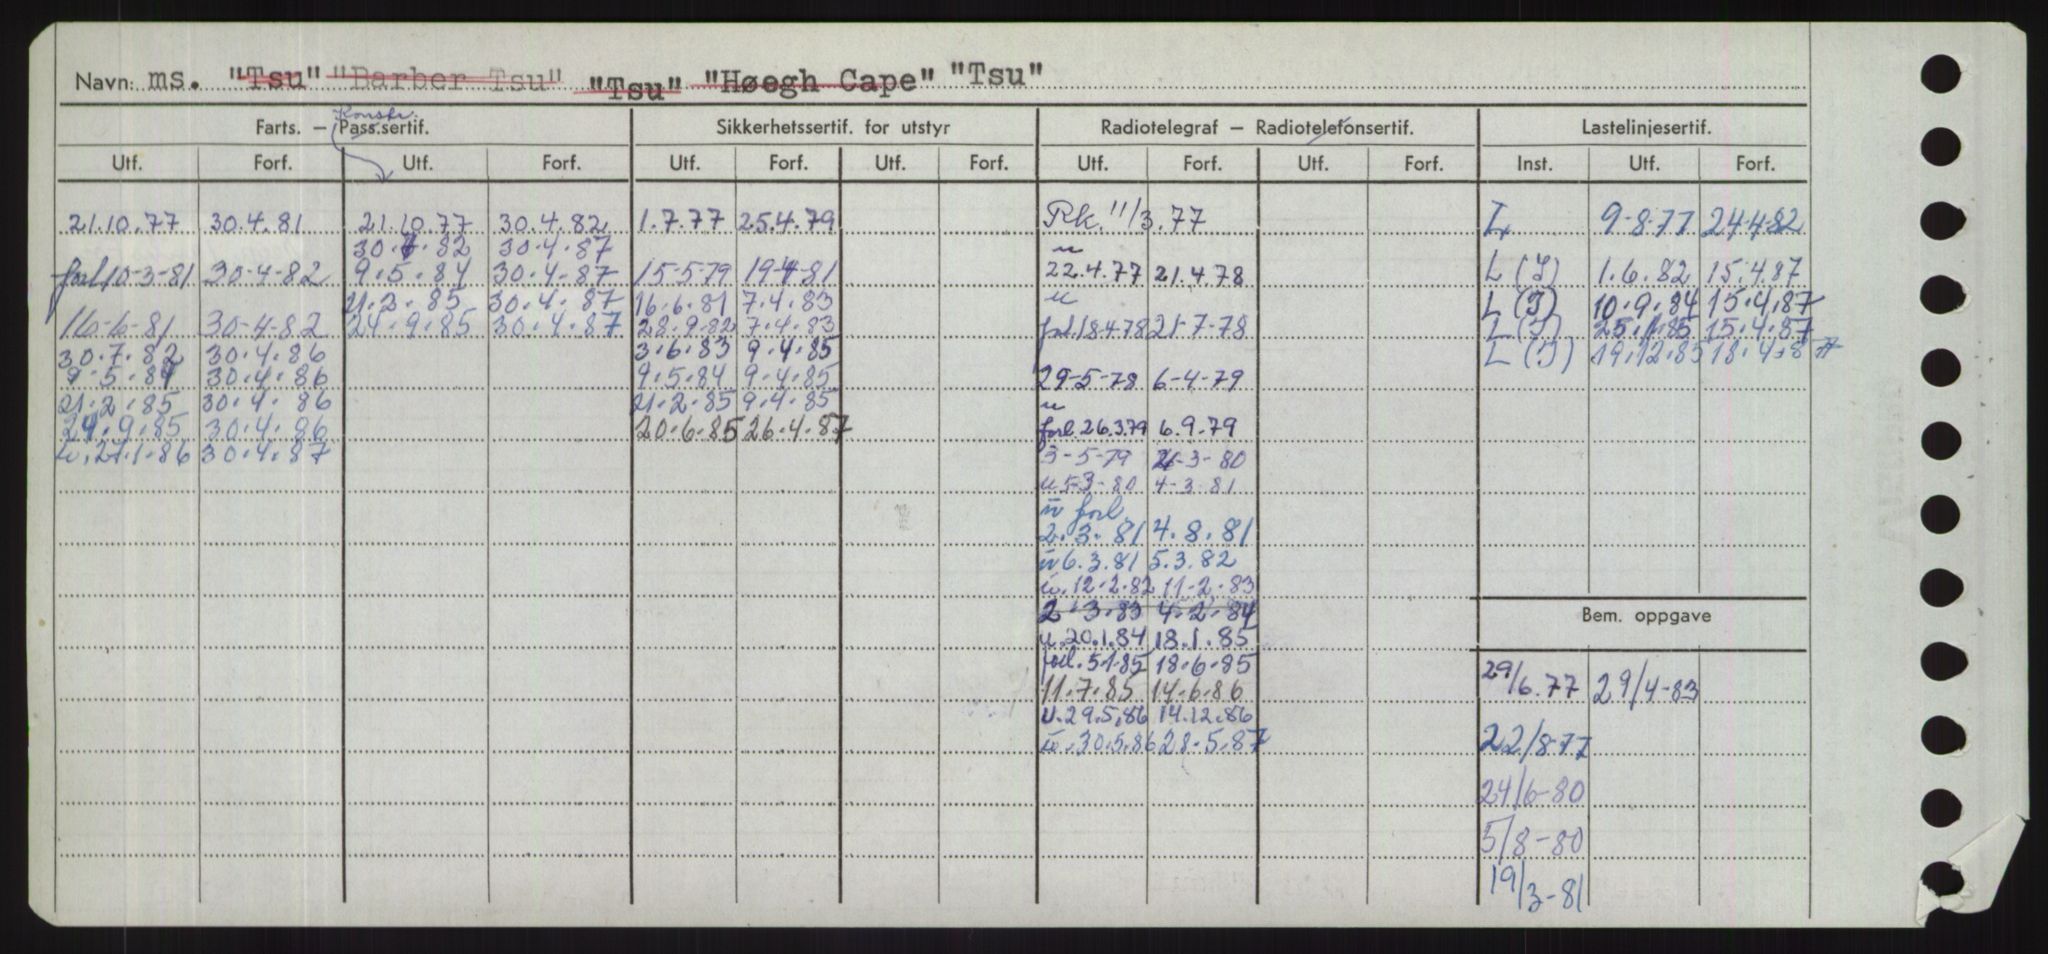 Navn: ms. "Tsu" "Barber Tsu" "Tsu" "Høegh Cape" "Tsu"
Konstr.
Farts. — Pass.sertif. Sikkerhetssertif. for utstyr Radiotelegraf — Radiotelefonsertif. Lastelinjesertif.
Utf. Forf. Utf. Forf. Utf. Forf. Utf. Forf. Utf. Forf. Utf. Forf. Inst. Utf. Forf.
21.10.77 30.4.81 21.10.77 30.4.82 1.7.77 25.4.79 Rk. 11/3.77 L 9-8-77 24-4-82
30.7.82 30.4.87 u
forl 10-3-81 30-4-82 9.5.84 30.4.87 15-5-79 19-4-81 22.4.77 21.4.78 L (I) 1.6.82 15.4.87
21.2.85 30.4.87 16.6.81 7.4.83 u L (I) 10.9.84 15.4.87
16-6-81 30-4-82 24.9.85 30.4.87 28.9.82 7.4.83 forl. 18-4-78 21-7-78 L (I) 25.1.85 15.4.87
30.7.82 30.4.86 3.6.83 9.4.85 L (I) 19.12.85 18.4.87
9.5.84 30.4.86 9.5.84 9.4.85 29-5-78 6-4-79
21.2.85 30.4.86 21.2.85 9.4.85 u
24.9.85 30.4.86 20.6.85 26.4.87 forl. 26.3.79 6.9.79
u. 27.1.86 30.4.87 3-5-79 -3-80
u 5-3-80 4-3-81
u forl.
2.3.81 4.8.81
u 6.3.81 5.3.82
u. 12.2.82 11.2.83
2.3.83 4.2.84
Bem. oppgave
u. 20.1.84 18.1.85
forl. 5.1.85 18.6.85
11.7.85 14.6.86 29/6.77 29/4-83
u. 29.5.86 14.12.86
u. 30.5.86 28.5.87 22/8-77
24/6-80
5/8-80
19/3-81